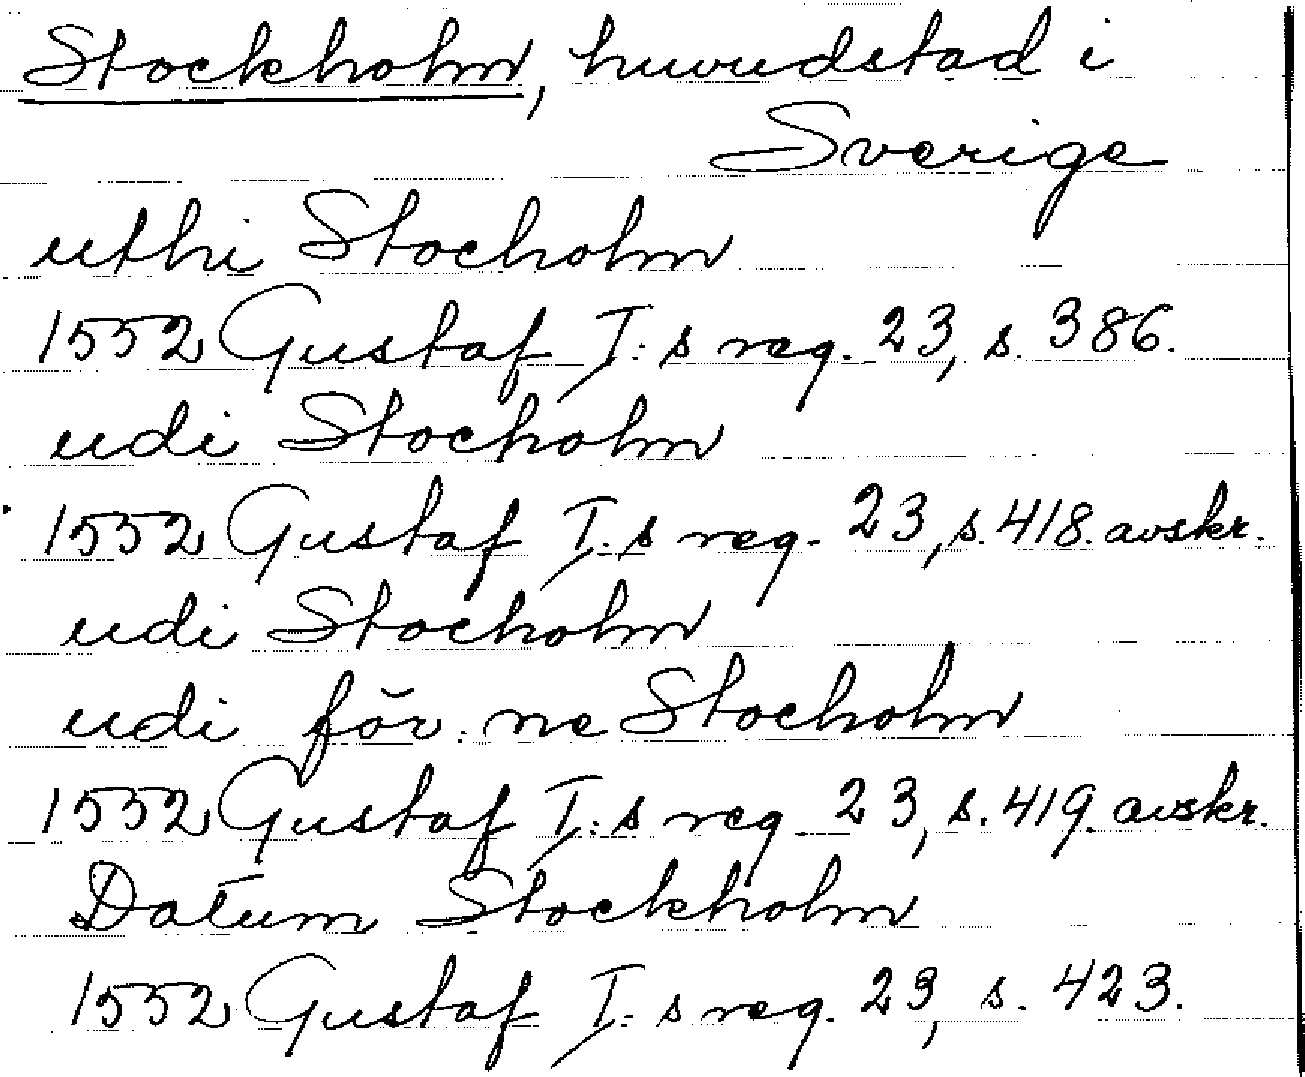 Stockholm, huvudstad i
Sverige
uthi Stocholm
1552 Gustaf I:s reg. 23, s. 386.
udi Stocholm
1552 Gustaf I:s reg. 23, s. 418. avskr.
udi Stocholm
udi för:ne Stocholm
1552 Gustaf I:s reg 23, s. 419. avskr.
Datum Stockholm
1552 Gustaf I:s reg. 23, s. 423.